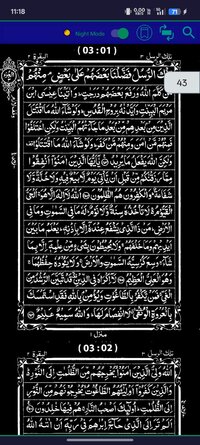 11:18
Night Mode
(03:01)
تلك الرسل ٣
البقرة ٢
43
تِلْكَ الرُّسُلُ فَضَّلْنَا بَعْضَهُمْ عَلٰى بَعْضٍ مِنْهُمْ
مَّنْ كَلَّمَ اللّٰهُ وَرَفَعَ بَعْضَهُمْ دَرَجٰتٍ وَاٰتَيْنَا عِيْسَى ابْنَ
مَرْيَمَ الْبَيِّنٰتِ وَاَيَّدْنٰهُ بِرُوْحِ الْقُدُسِ وَلَوْ شَآءَ اللّٰهُ مَا اقْتَتَلَ
الَّذِيْنَ مِنْ بَعْدِهِمْ مِّنْ بَعْدِ مَا جَآءَتْهُمُ الْبَيِّنٰتُ وَلٰكِنِ اخْتَلَفُوْا
فَمِنْهُمْ مَّنْ اٰمَنَ وَمِنْهُمْ مَّنْ كَفَرَ وَلَوْ شَآءَ اللّٰهُ مَا اقْتَتَلُوْا
وَلٰكِنَّ اللّٰهَ يَفْعَلُ مَا يُرِيْدُ يٰٓاَيُّهَا الَّذِيْنَ اٰمَنُوْٓا اَنْفِقُوْا
مِمَّا رَزَقْنٰكُمْ مِّنْ قَبْلِ اَنْ يَّاْتِيَ يَوْمٌ لَّا بَيْعٌ فِيْهِ وَلَا خُلَّةٌ وَّلَا
شَفَاعَةٌ وَالْكٰفِرُوْنَ هُمُ الظّٰلِمُوْنَ اَللّٰهُ لَآ اِلٰهَ اِلَّا هُوَ اَلْحَيُّ
الْقَيُّوْمُ لَا تَاْخُذُهٗ سِنَةٌ وَّلَا نَوْمٌ لَهٗ مَا فِي السَّمٰوٰتِ وَمَا فِي
الْاَرْضِ مَنْ ذَا الَّذِيْ يَشْفَعُ عِنْدَهٗٓ اِلَّا بِاِذْنِهٖ يَعْلَمُ مَا بَيْنَ
اَيْدِيْهِمْ وَمَا خَلْفَهُمْ وَلَا يُحِيْطُوْنَ بِشَيْءٍ مِّنْ عِلْمِهٖٓ اِلَّا بِمَا
شَآءَ وَسِعَ كُرْسِيُّهُ السَّمٰوٰتِ وَالْاَرْضَ وَلَا يَـُٔوْدُهٗ حِفْظُهُمَا
وَهُوَ الْعَلِيُّ الْعَظِيْمُ لَآ اِكْرَاهَ فِي الدِّيْنِ قَدْ تَّبَيَّنَ الرُّشْدُ مِنَ
الْغَيِّ فَمَنْ يَّكْفُرْ بِالطَّاغُوْتِ وَيُؤْمِنْ بِاللّٰهِ فَقَدِ اسْتَمْسَكَ
بِالْعُرْوَةِ الْوُثْقٰى لَا انْفِصَامَ لَهَا وَاللّٰهُ سَمِيْعٌ عَلِيْمٌ
منزل ١
(03:02)
تلك الرسل ٣
البقرة ٢
اَللّٰهُ وَلِيُّ الَّذِيْنَ اٰمَنُوْا يُخْرِجُهُمْ مِّنَ الظُّلُمٰتِ اِلَى النُّوْرِ
وَالَّذِيْنَ كَفَرُوْٓا اَوْلِيٰٓـُٔهُمُ الطَّاغُوْتُ يُخْرِجُوْنَهُمْ مِّنَ النُّوْرِ
اِلَى الظُّلُمٰتِ اُولٰٓئِكَ اَصْحٰبُ النَّارِ هُمْ فِيْهَا خٰلِدُوْنَ
اَلَمْ تَرَ اِلَى الَّذِيْ حَآجَّ اِبْرٰهٖمَ فِيْ رَبِّهٖٓ اَنْ اٰتٰىهُ اللّٰهُ